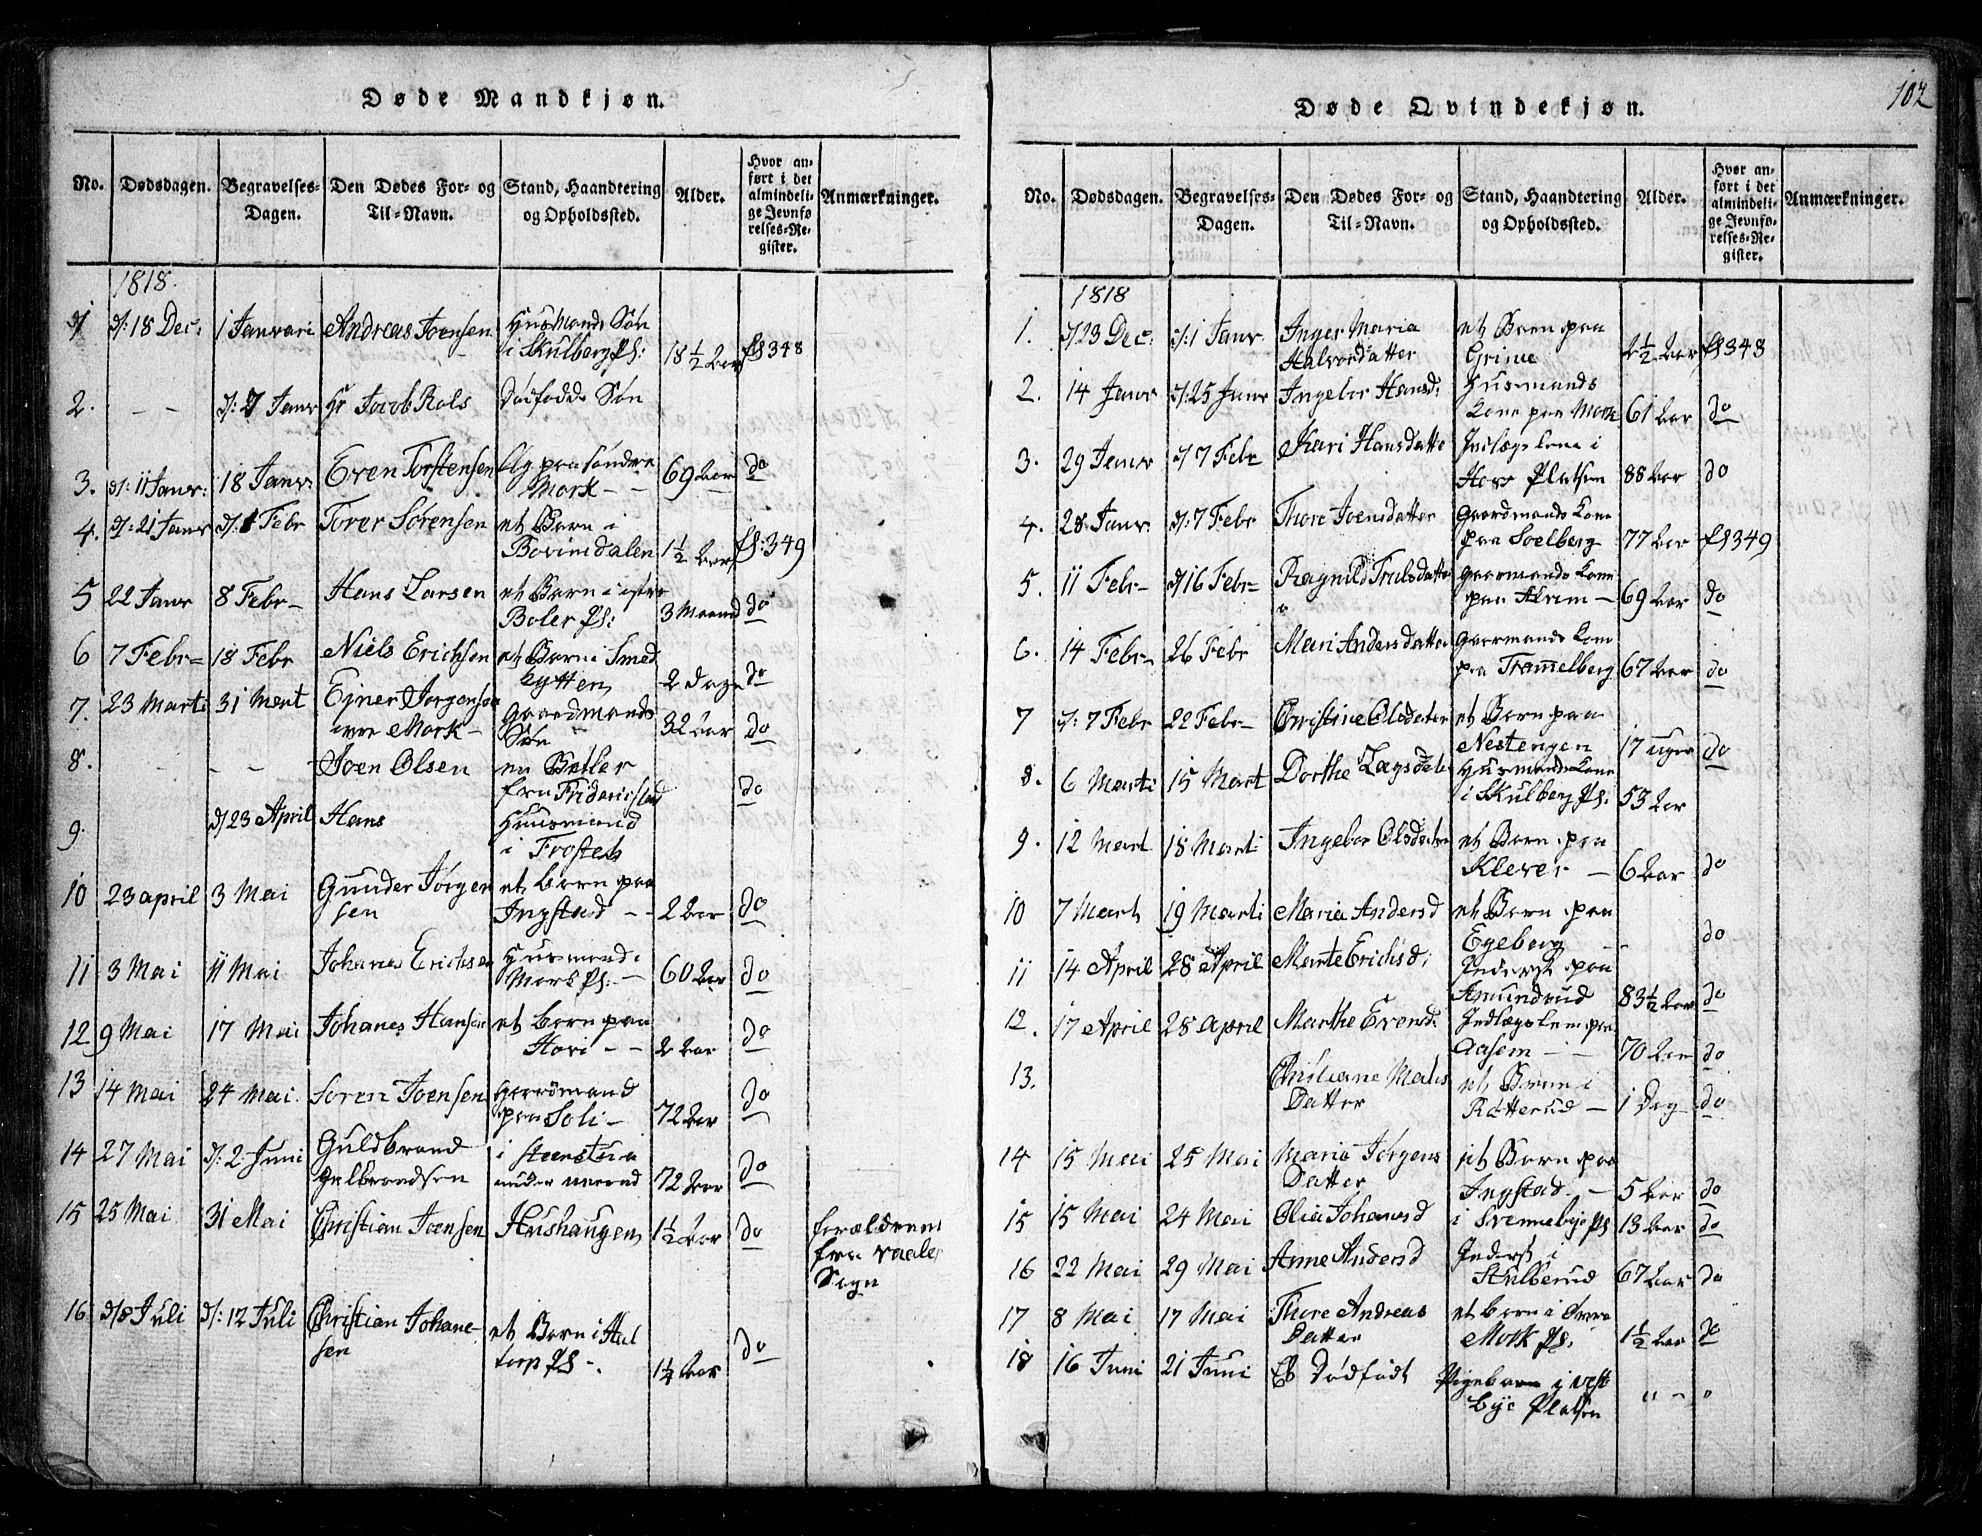 102
Døde Mandkjøn.
No. Dødsdagen. Begravelses-Dagen. Den Dødes For- og Til-Navn. Stand, Haandtering og Opholdssted. Alder. Hvor anført i det almindelige Jevnførelses-Register. Anmærkninger.
1818.
1 d/: 18 Dec: 1 Januari Andreas Joensen Husmands Søn
i Skulberg Ps: 18 1/2 Aar fs 348
2. - - d/: 7 Janr Hr Jacob Rols Dødfødde Søn
3. d/: 11 Janr: 18 Janr: Even Torstensen paa søndre
Mork - - 69 Aar do
4. d/: 21 Janr d/: 1 Febr Torer Sørensen et Barn i
Bovimdalen 1 1/2 Aar fs: 349
5 22 Janr 8 Febr - Hans Larsen et Barn i
Boler Ps: 3 Maaned do
6 7 Febr = 18 Febr Niels Erichsen et Barn i Smed
hytten 2 Dage do
7. 23 Marti 31 Mart Ejner Jørgensen Gaardmands
Mork - Søn 32 Aar do
8. - - - Joen Olsen en Betler
fra Friderichstad do
9. d/23 April Hans Huusmand
i Frosteds
10 23 april 3 Mai Gunder Jørgen et barn paa
sen Ingstad - - 2 Aar do
11 3 Mai 11 Mai Johanes Erichsen Husmand i
Mork Ps: - 60 Aar do
12 9 Mai 17 Mai Johanes Hansen et barn paa
Hovi - - 2 Aar do
13 14 Mai 24 Mai. Soren Joensen Gaardmand
paa Soli - 72 Aar do
14 27 Mai d/: 2 Juni Guldbrand i Steenstuu
Gulbrandsen under 72 Aar do
15 25 Mai 31 Mai Christian Joensen Hushaugen 1 1/2 Aar do forældrene
fra Vaaler
Sogn
16 d/8 Juli d/: 12 Juli Christian Johane-
sen et Barn i Hal
torp Ps -. 1 1/4 Aar do
Døde Qvindekjøn.
No. Dødsdagen. Begravelses-Dagen. Den Dødes For- og Til-Navn. Stand, Haandtering og Opholdssted. Alder. Hvor anført i det almindelige Jevnførelses-Register. Anmærkninger.
1818
1. d/23 Dec: d/: 1 Janr Inger Maria et Barn paa
Halvordatter Grime 2 1/2 Aar fs 348
2. 14 Janr d/: 25 Janr Ingebor Hansd: Husmands
Kone paa Mork 61 Aar do
3. 29 Janr d/ 7 Febr Kari Hansdatte Indlægs Kone i
Hovi Platsen 88 Aar do
4. 28 Janr d/: 7 Febr Thore Joensdatter Gaardmands Kone
paa Soelberg 77 Aar fs 349
5. 11 Febr - d/16 Febr - Ragnild Trulsdatte Gaarmands Kone
paa - 69 Aar do
6. 14 Febr - 26 Febr Mari Andersdatter Gaarmands Kone
paa Trømelberg 67 Aar do
7 d/: 7 Febr 22 Febr - Christine Olsdater et Barn paa
Nestengen 17 uger do
8. 6 Marti 15 Mart Dorthe Husmands Kone
i Skulberg Ps: 53 Aar
9. 12 Mart 18 Marti Ingebor Olsdater et Barn paa
Klever - 6 Aar do
10 7 Mart 19 Marti Maria Andersd et Barn paa
Egeberg - - do
11 14 April 28 April Marte Erichsd: Inderst paa
Amundrud 83 1/2 Aar do
12. 17 April 28 april Marthe Evensd: Indlægs Lem paa
Aasem - - 70 Aar do
13. Christiane Mates et Barn i
Datter Røtterud - 1 Dag do
14 15 Mai 25 Mai Maria Jørgens et Barn paa
Datter Ingstad. - 5 Aar do
15 15 Mai 24 Mai Olia Johansd i Svennebye Ps 13 Aar do
16 22 Mai 29 Mai Anne Andersd Inderst i
Skulberud 67 Aar do
17 8 Mai 17 Mai Thore Andreas et barn i Øvre
Datter Mork Ps. 1 1/2 Aar do
18 16 Juni 21 Juni Et Dødfødt Pigebarn i vest
bye Platsen " - "